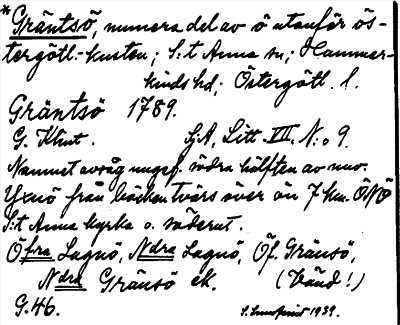 *Gräntsö, numera del av ö utanför ös-
tergötl.-kusten; S:t Anna sn; Hammar-
kinds hd; Östergötl. l.
Gräntsö 1789.
G. Klint. SjA, Litt. VII. N:o 9.
Namnet avsåg ungef. södra hälften av nuv.
Yxnö från bäcken tvärs över ön 7 km. ÖNÖ
S:t Anna kyrka o. söderut.
Öfra Lagnö, Ndra Lagnö, Öf. Gränsö,
Ndra Gränsö ek. (Vänd!)
G.46. 1939.